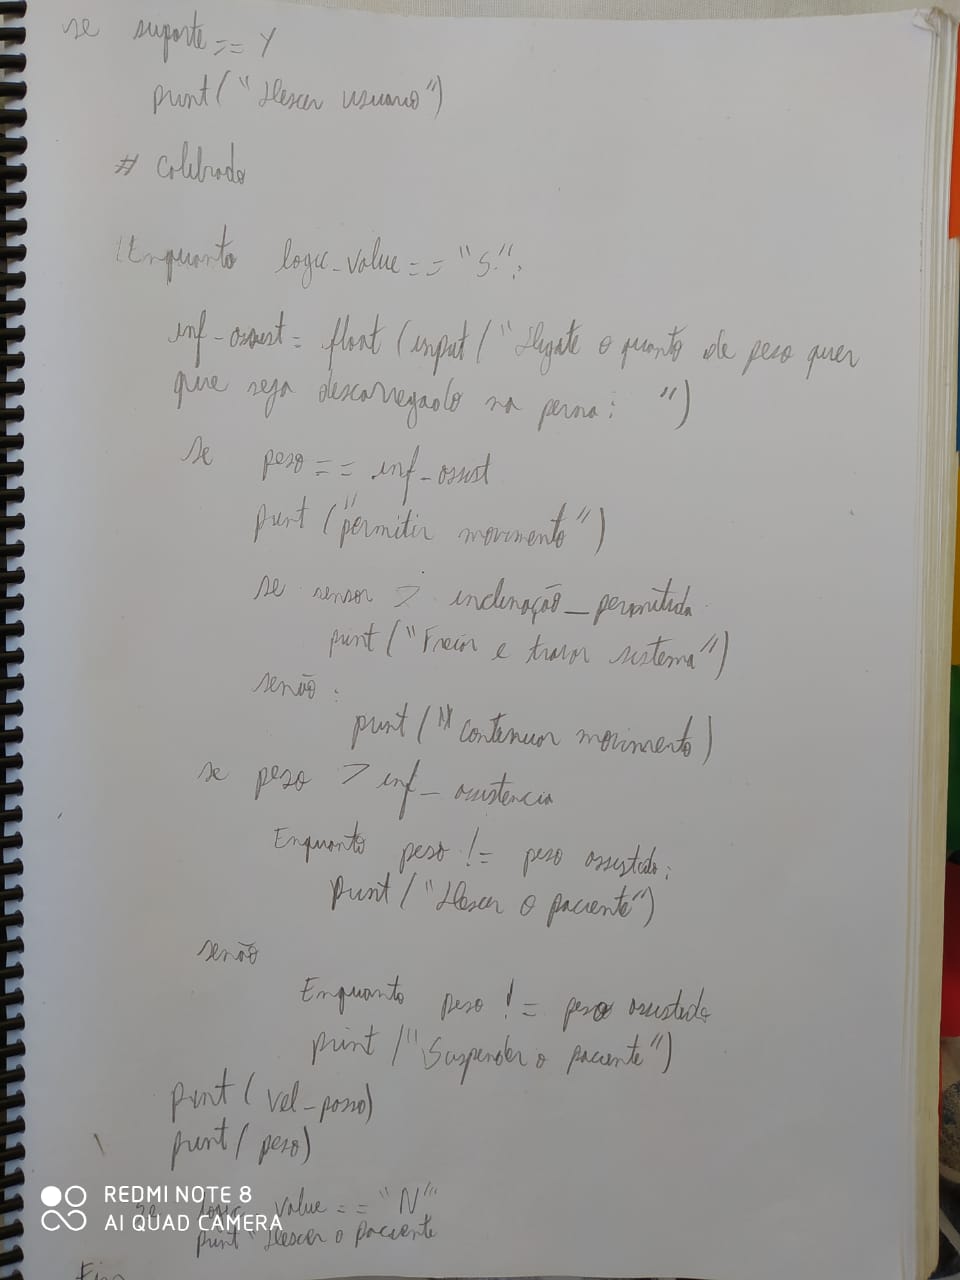 se suporte == Y
print("Descer usuario")
# Calibrado
Enquanto logic_value == "S":
inf-assist = float (input ("Digite o quanto de peso quer
que seja descarregado na perna: ")
se peso == inf-assist
print ("permitir movimento")
se sensor > inclinação_permitida
print ("Freiar e travar sistema")
senão:
print (" continuar movimento)
se peso > inf_assistencia
Enquanto peso != peso assistido:
print ("Descer o paciente")
senão
Enquanto peso != peso assistido
print ("Suspender o paciente")
print (vel_passo)
print (peso)
se logic value == "N"
print "Descer o paciente
Fim
REDMI NOTE 8
AI QUAD CAMERA